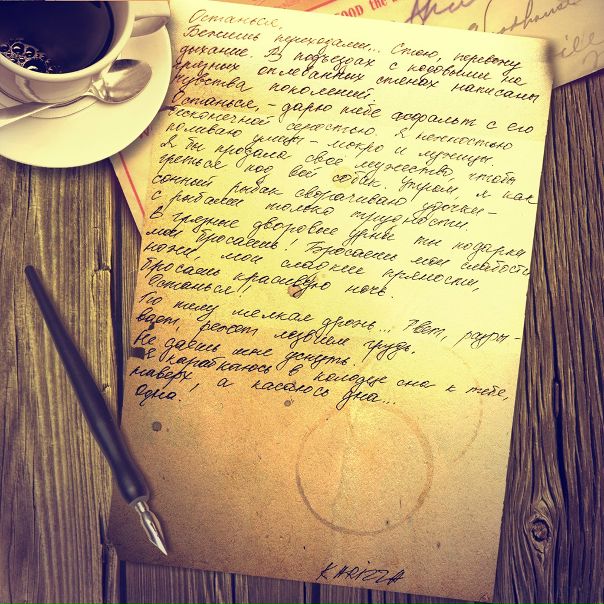 Останься,
Бежишь переходами... Стою, перевожу
дыхание. В подъездах с кодовыми на
грязных оплеванных стенах написаны
чувства поколений.
Останься, - дарю тебе асфальт с его
бесконечной серостью. Я нежностью
поливаю улицы - мокро и лужицы.
Я бы продала своё мужество, чтобы
греться под вой собак. Утром я как
сонный рыбак сворачиваю удочки -
с рыбами только трудности.
В грязные дворовые урны ты подарки
мои бросаешь! Бросаешь мои слабости,
ножи, мои сладкие пряности,
бросаешь красивую ночь.
Останься!
По телу мелкая дрожь... Рвёт, разры-
вает, режет лезвием грудь.
Не даёшь мне уснуть.
Я карабкаюсь в колодце сна к тебе,
наверх, а касаюсь дна...
Одна!
KARIZZA
OOD the